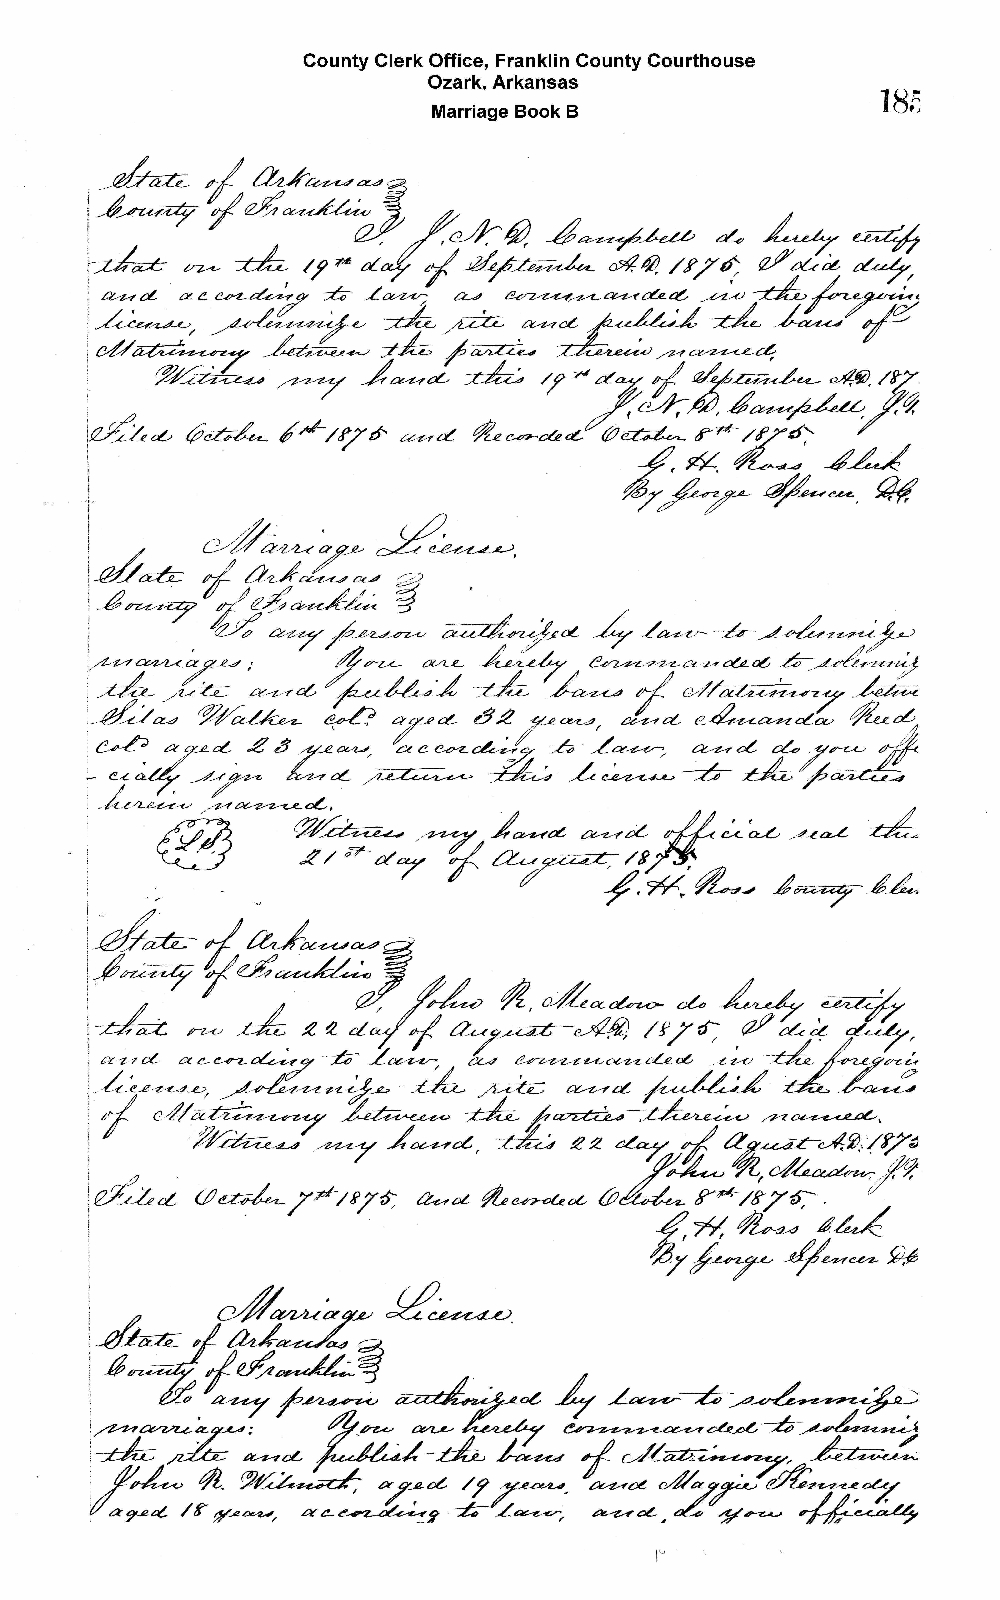 County Clerk Office, Franklin County Courthouse
Ozark, Arkansas
Marriage Book B
185
State of Arkansas
County of Franklin
I, J. N. D. Campbell do hereby certify
that on the 19th day of September A.D. 1875, I did duly,
and according to law, as commanded in the foregoing
license, solemnize the rite and publish the bans of
Matrimony between the parties therein named.
Witness my hand this 19th day of September A.D. 187
J. N. D. Campbell, J.P.
Filed October 6th 1875 and Recorded October 8th 1875.
G. H. Ross Clerk
By George Spencer, D.C.
Marriage License.
State of Arkansas
County of Franklin
To any person authorized by law to solemnize
marriages: You are hereby commanded to solemniz
the rite and publish the bans of Matrimony betwe
Silas Walker cold aged 32 years, and Amanda Reed
cold aged 23 years, according to law, and do you offi
- cially sign and return this license to the parties
herein named.
L.S. Witness my hand and official seal this
21st day of August, 1875.
G. H. Ross County Cler
State of Arkansas
County of Franklin
I, John R. Meadow do hereby certify
that on the 22 day of August A.D. 1875, I did duly,
and according to law, as commanded in the foregoing
license, solemnize the rite and publish the bans
of Matrimony between the parties therein named.
Witness my hand, this 22 day of Agust A.D. 1875
John R, Meadow, J.P.
Filed October 7th 1875, and Recorded October 8th 1875.
G. H. Ross Clerk
By George Spencer DC
Marriage License.
State of Arkansas
County of Franklin
To any person authorized by law to solemnize
marriages: You are hereby commanded to solemniz
the rite and publish the bans of Matrimony, between
John R. Wilmoth, aged 19 years, and Maggie Kennedy
aged 18 years, according to law, and do you officially